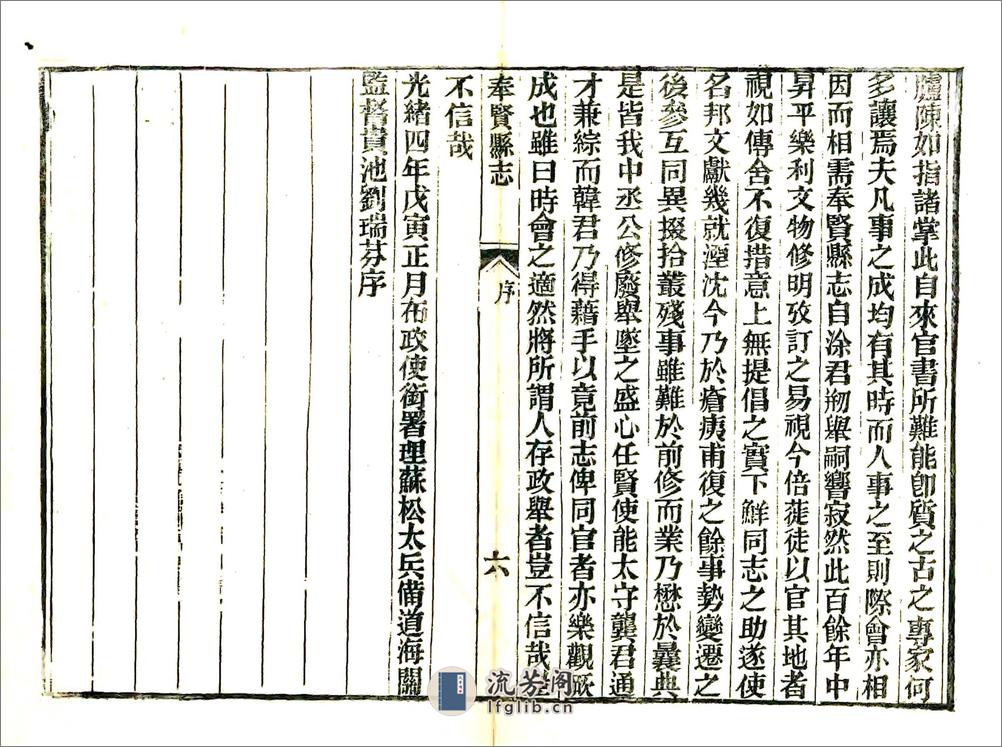 臚陳如指諸掌此自來官書所難能卽質之古之專家何
多讓焉夫凡事之成均有其時而人事之至則際會亦相
因而相需奉賢縣志自涂君剏舉嗣響寂然此百餘年中
昇平樂利文物修明攷訂之易視今倍蓰徒以官其地者
視如傳舍不復措意上無提倡之實下鮮同志之助遂使
名邦文獻幾就湮沈今乃於瘡痍甫復之餘事勢變遷之
後參互同異掇拾叢殘事雖難於前修而業乃懋於曩典
是皆我中丞公修廢舉墜之盛心任賢使能太守龔君通
才兼綜而韓君乃得藉手以竟前志俾同官者亦樂觀厥
成也雖曰時會之適然將所謂人存政舉者豈不信哉豈
奉賢縣志
序
六
不信哉
光緒四年戊寅正月布政使銜署理蘇松太兵備道海關
監督貴池劉瑞芬序
流芳閣
lfglib.cn